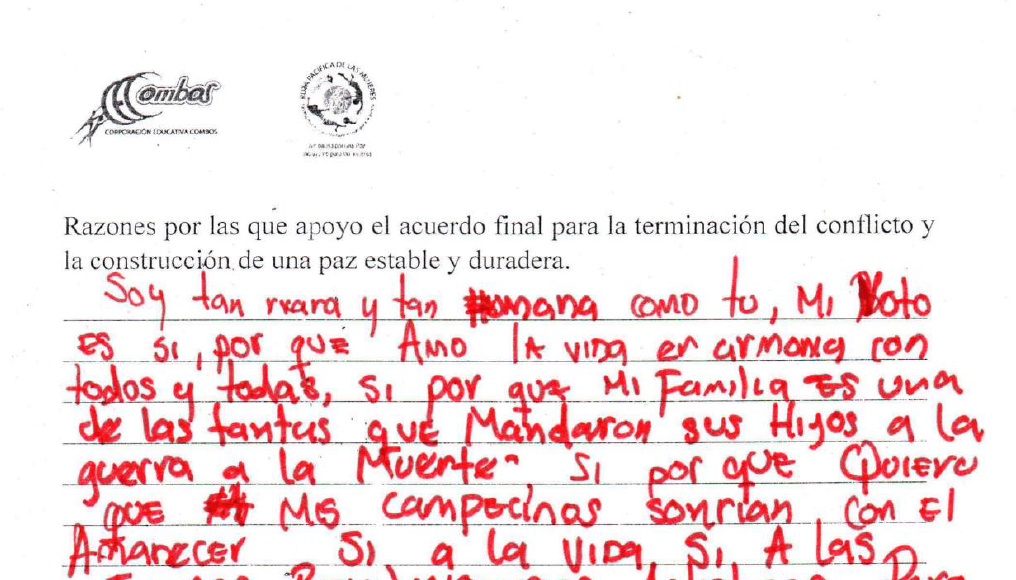 ombos
CORPORACIÓN EDUCATIVA COMBOS
RUTA PACIFICA DE LAS MUJERES
Razones por las que apoyo el acuerdo final para la terminación del conflicto y
la construcción de una paz estable y duradera.
Soy tan rrara y tan Humana como tu, Mi Voto
ES SI, por que Amo la vida en armonia con
todos y todas, Si por que Mi Familia ES una
de las tantas que Mandaron sus Hijos a la
guerra a la Muerte. Si por que Quiero
que Mis campecinos sonrian con El
Amanecer Si, a la Vida, Si, A las